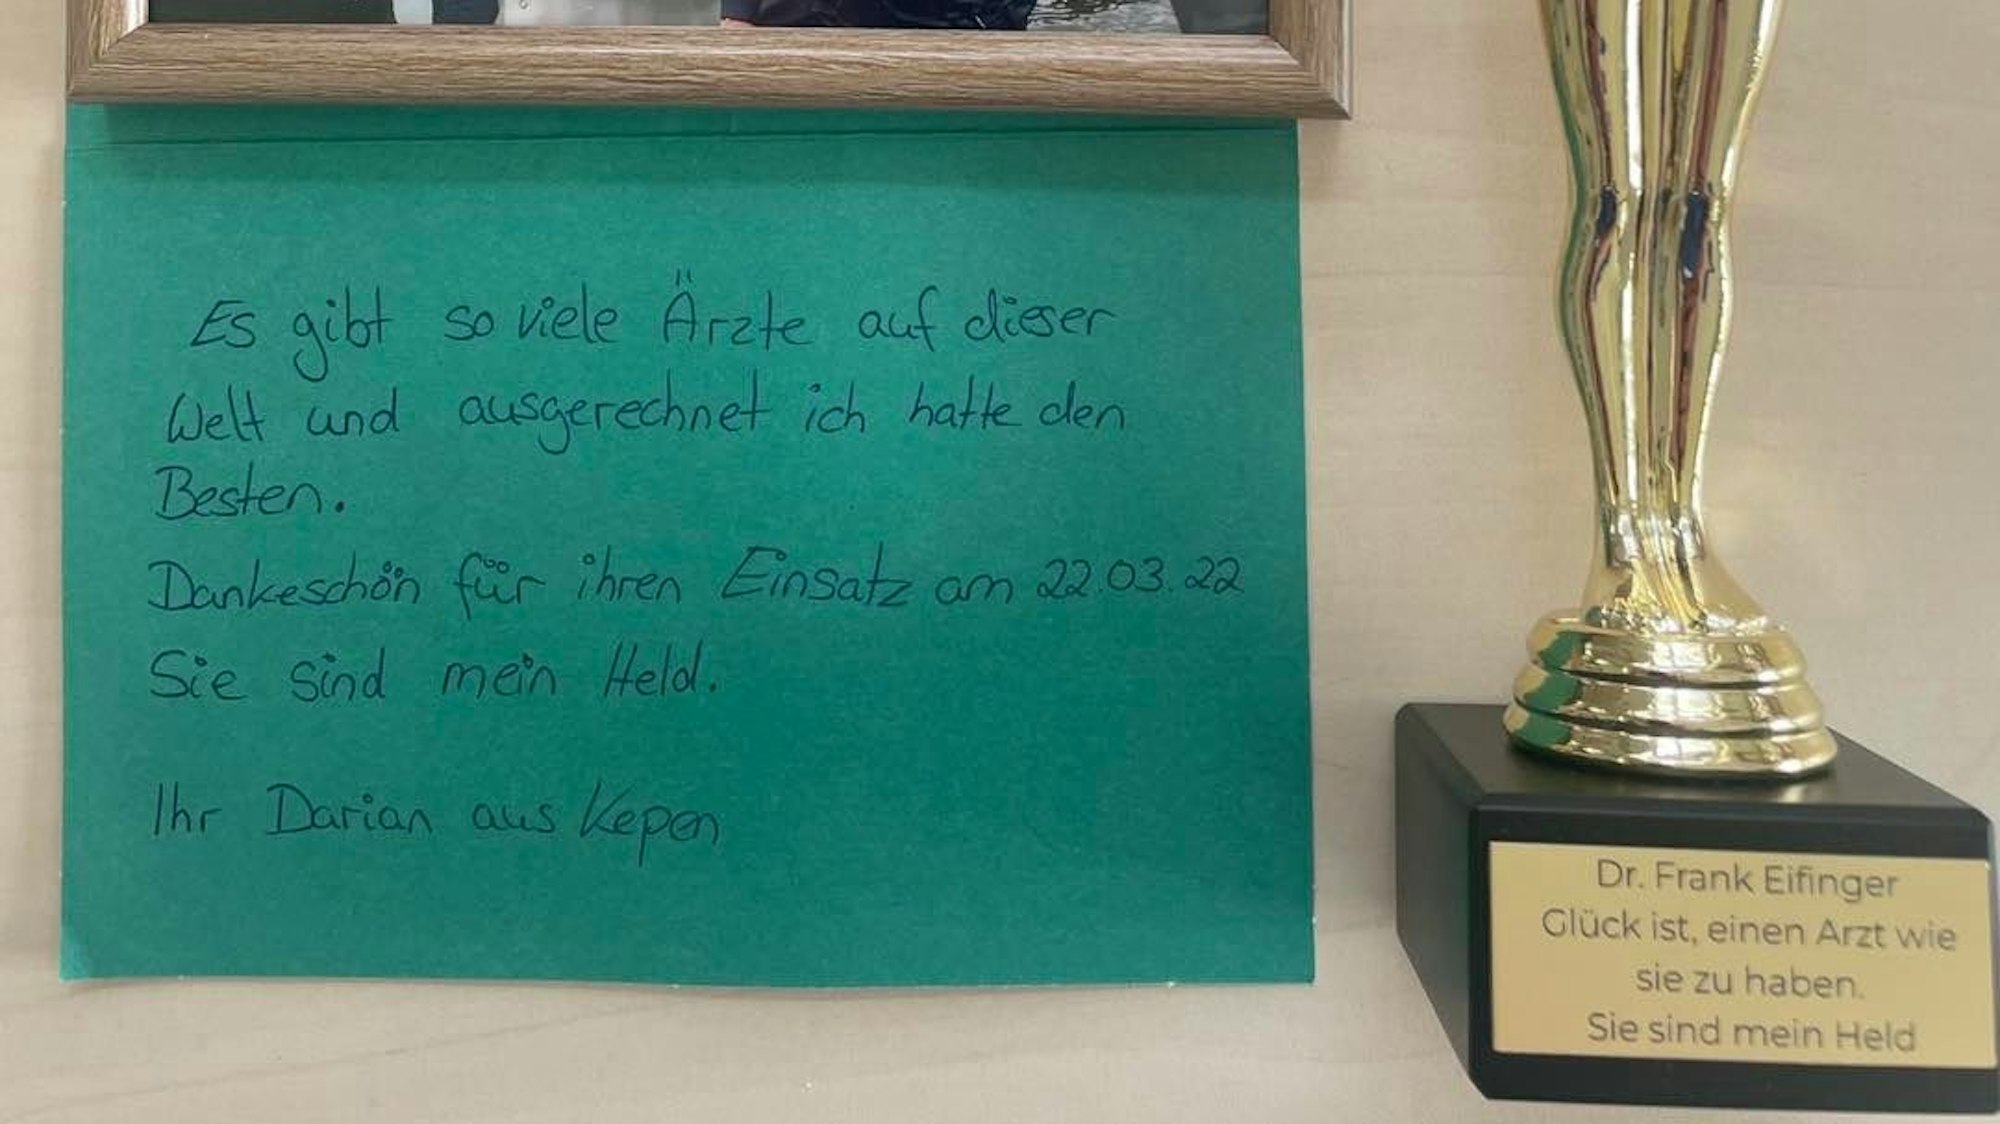 Es gibt so viele Ärzte auf dieser
Welt und ausgerechnet ich hatte den
Besten.
Dankeschön für ihren Einsatz am 22.03.22
Sie sind mein Held.
Ihr Darian aus Kepen
Dr. Frank Eifinger
Glück ist, einen Arzt wie
sie zu haben.
Sie sind mein Held